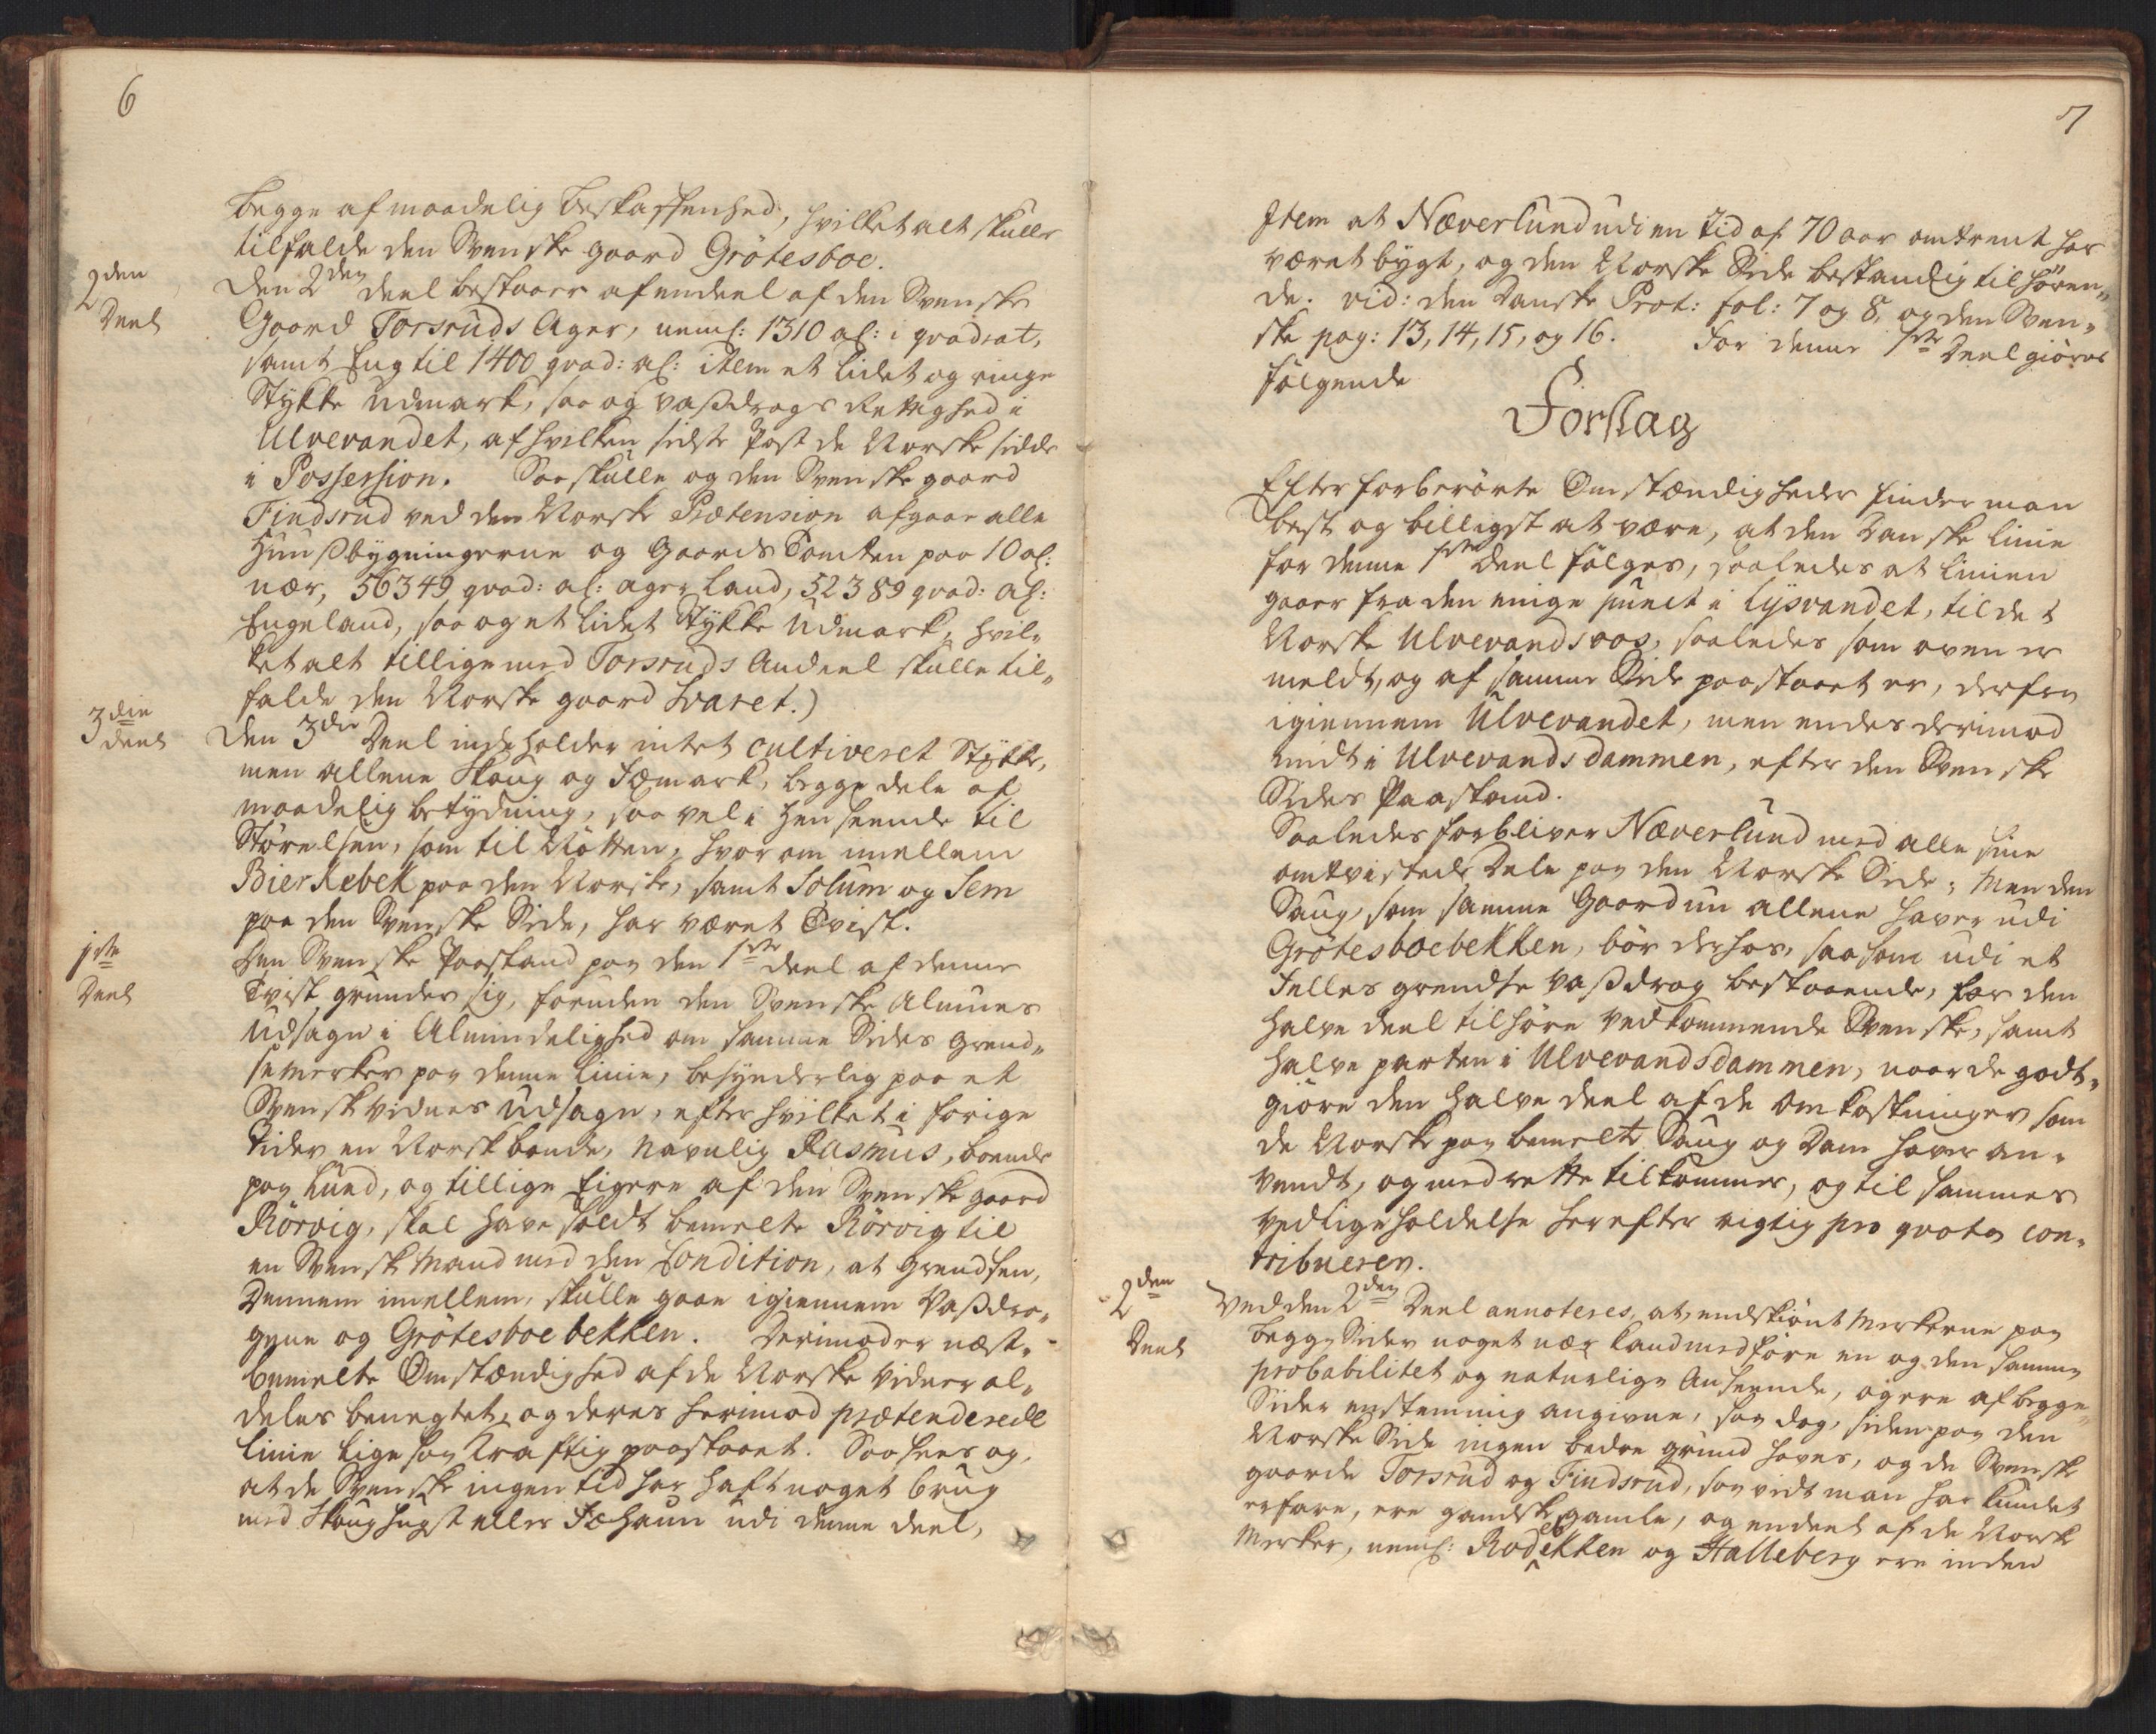 6
begge af maadelig beskaffenhed, hvilket alt skulle
tilfalde den Svenske gaard Grötesboe.
2den
Deel
Den 2den deel bestaaer af endeel af den Svenske
Gaard Torsruds Ager, neml: 1310 al: i qvadrat,
samt Eng til 1400 qvad: al: item et lidet og ringe
Stykke Udmark, saa og vaßdrags Rettighed i
Ulvevandet, af hvilken sidste Post de Norske sidde
i Possession. Saa skulle og den Svenske gaard
Findsrud ved den Norske Prætension afgaae alle
Huußbygningerne og Gaards Tomten paa 10 al:
nær, 56349 qvad: al: ager land, 52389 qvad: al:
Engeland, saa og et lidet Stykke Udmark, hvil„
ket alt tillige med Torsruds Andeel skulle til„
falde den Norske gaard Svaret.)
3die
deel
Den 3die Deel indeholder intet cultiveret Stykke,
men allene Skoug og Fæmark, begge dele af
maadelig betydning, saa vel i henseende til
Störelsen, som til Nötten, hvorom imellem
Bierkebek paa den Norske, samt Solum og Sem
paa den Svenske Side, har været Tvist.
1ste
Deel
Den Svenske Paastand paa den 1ste deel af denne
Tvist grunder sig, foruden den Svenske Almues
Udsagn i Almindelighed om samme Sides Grend„
semerker paa denne Linie, besynderlig paa et
Svensk vidnes Udsagn, efter hvilket i forige
Tider en Norsk bonde, navnlig Rasmus, boende
paa Lund, og tillige Eigere af den Svenske gaard
Rörvig, skal have soldt bemelte Rörvig til
en Svensk Mand med den Condition, at Grendsen,
Dennem imellem, skulle gaae igiennem Vaßdra„
gene og Grötesboebekken. Derimod er næst„
bemelte Omstændighed af de Norske Vidner al„
deles benegtet, og deres herimod prætenderede
Linie lige saa kraftig paastaaet. Saa sees og,
at de Svenske ingen tid har haft noget brug
med Skoug hugst eller Fæhaun udi denne deel,
7
Item at Næverlund udi en Tid af 70 aar omtrent har
været bygt, og den Norske Side bestandig tilhören„
de. vid: den Danske Prot: fol: 7 og 8, og den Sven„
ske pag: 13, 14, 15, og 16. For denne 1ste Deel giöres
fölgende
Forslag
Efter forberörte Omstændigheder finder man
best og billigst at være, at den Danske Linie
for denne 1ste deel fölges, saaledes at Linien
gaaer fra den enige punct i Lysvandet, til det
Norske Ulvevands oos, saaledes som oven er
meldt, og af samme Side paastaaet er, derfra
igiennem Ulvevandet, men endes derimod
midt i Ulvevandsdammen, efter den Svenske
Sides Paastand.
Saaledes forbliver Næverlund med alle sine
omtvistede Dele paa den Norske Side; Men den
Saug, som samme Gaard nu allene haver udi
Grötesboebekken, bör derhos, saasom udi et
Felles grendse vaßdrag bestaaende, for den
halve deel tilhöre Vedkommende Svenske, samt
halve parten i Ulvevandsdammen, naar de godt„
giöre den halve deel af de Omkostninger som
de Norske paa bemelte Saug og Dam haver an„
vendt, og med rette tilkommer, og til sammes
Vedligeholdelse herefter rigtig pro qvota con„
tribuerer.
2den
Deel
Ved den 2den Deel annoteres, at, endskiönt Merkerne paa
begge Sider noget nær land medföre en og den samme
probabilitet og naturlige Anseende, og ere af begge
Sider enstemmig angivne, saa dog, siden paa den
Norske Side ingen bedre grund haves, og de Svenske
gaarde Torsrud og Findsrud, saavidt man har kundet
erfare, ere gandske gamle, og endeel af de Norske
Merker, neml: Rodebekken og Stalleberg ere inden